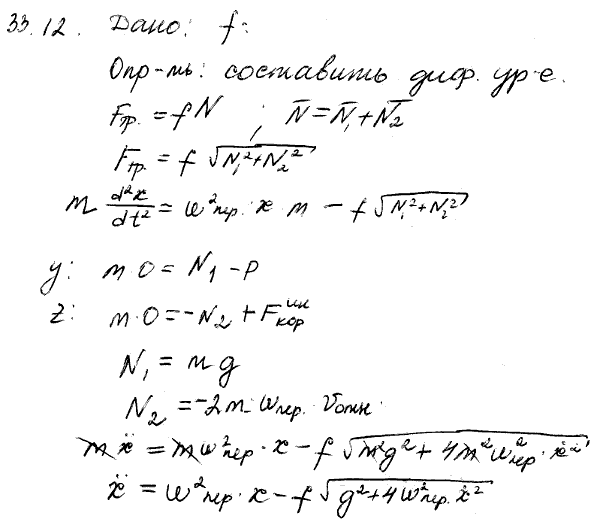 33.12. Дано: f:
Опр-ть: составить диф. ур-е.
Fтр. = fN ; N̄ = N̄₁ + N̄₂
Fтр. = f √(N₁² + N₂²)
m d²x/dt² = ω²пер. x m − f √(N₁² + N₂²)
y: m·0 = N₁ − P
z: m·0 = −N₂ + Fᵘᴴкор
N₁ = mg
N₂ = −2m·ωпер. Vотн.
mẍ = mω²пер · x − f √(m²g² + 4m²ω²пер · ẋ²)
ẍ = ω²пер · x − f √(g² + 4ω²пер. ẋ²)